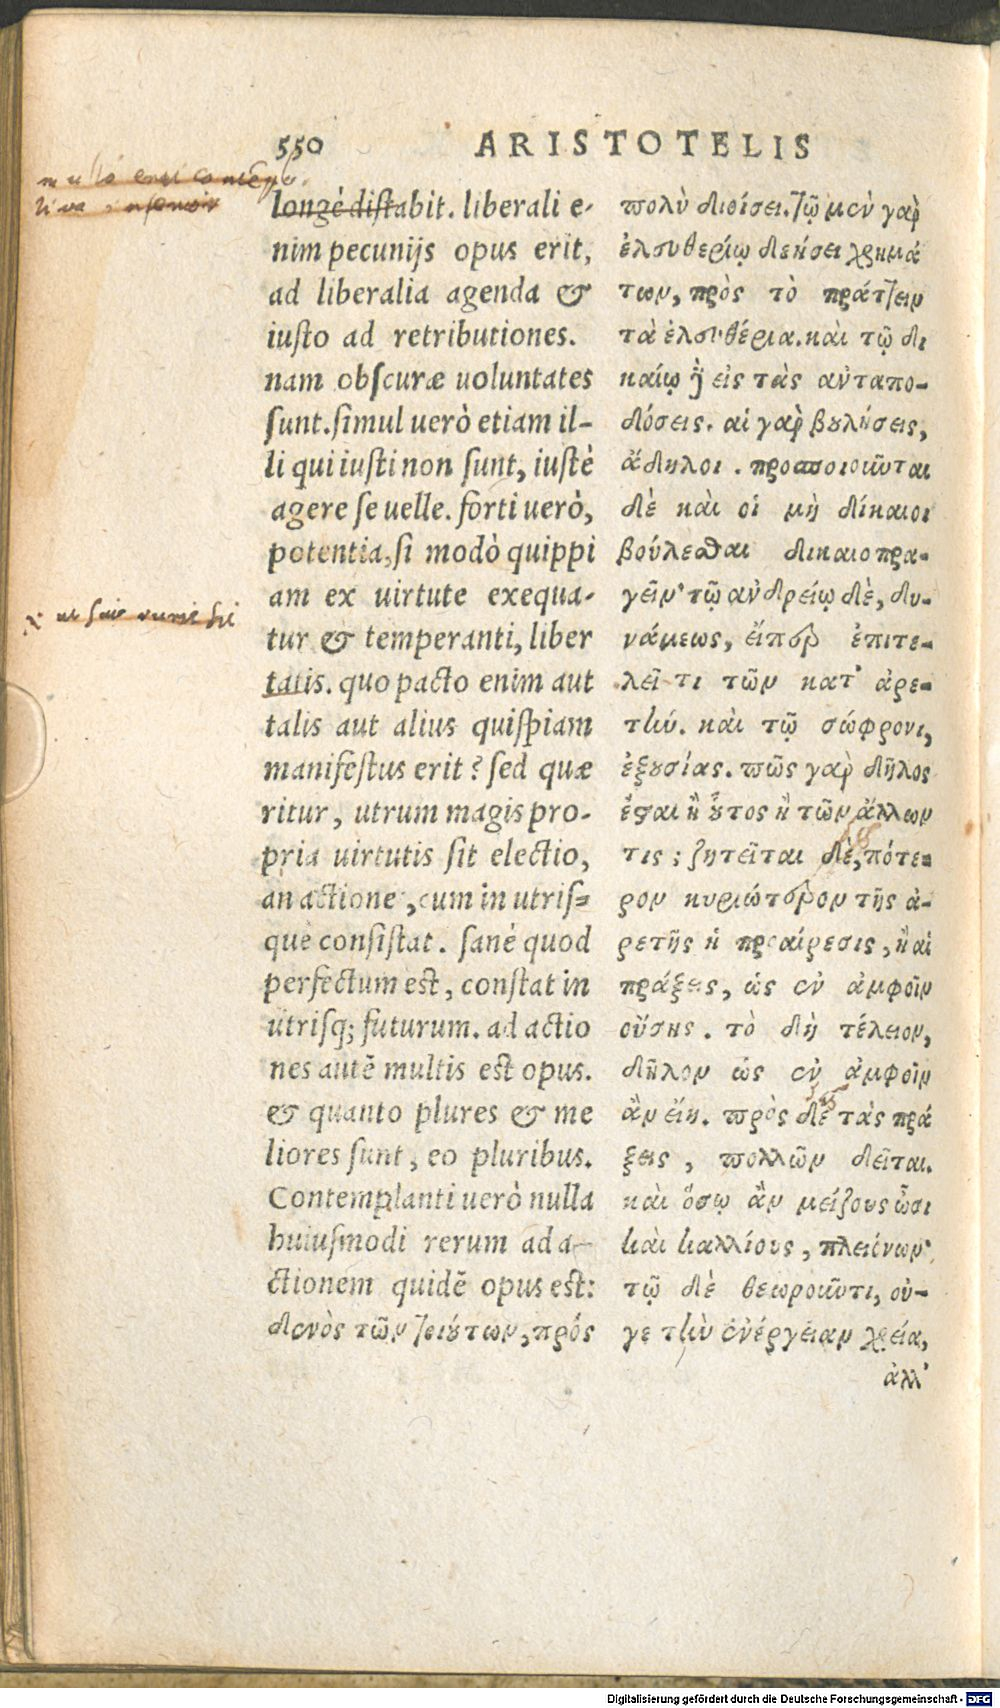 550 ARISTOTELIS
longè distabit. liberali e-
nim pecunijs opus erit,
ad liberalia agenda &
iusto ad retributiones.
nam obscuræ uoluntates
sunt. simul uerò etiam il-
li qui iusti non sunt, iustè
agere se uelle. forti uerò,
potentia, si modò quippi
am ex uirtute exequa-
tur & temperanti, liber
tatis. quo pacto enim aut
talis aut alius quispiam
manifestus erit? sed quæ
ritur, utrum magis pro-
pria uirtutis sit electio,
an actione, cum in utris-
que consistat. sanè quod
perfectum est, constat in
utrisq; futurum. ad actio
nes autē multis est opus.
& quanto plures & me
liores sunt, eo pluribus.
Contemplanti uerò nulla
huiusmodi rerum ad a-
ctionem quidē opus est:
πολὺ διοίσει. τῷ μὲν γὰρ
ἐλευθερίῳ δεήσει χρημά
των, πρὸς τὸ πράττειν
τὰ ἐλευθέρια. καὶ τῷ δι
καίῳ δὴ εἰς τὰς ἀνταπο-
δόσεις. αἱ γὰρ βουλήσεις,
ἄδηλοι. προσποιοῦνται
δὲ καὶ οἱ μὴ δίκαιοι
βούλεσθαι δικαιοπρα-
γεῖν· τῷ ἀνδρείῳ δὲ, δυ-
νάμεως, εἴπερ ἐπιτε-
λεῖ τι τῶν κατ' ἀρε-
τήν. καὶ τῷ σώφρονι,
ἐξουσίας. πῶς γὰρ δῆλος
ἔσται ἢ οὗτος ἢ τῶν ἄλλων
τις; ζητεῖται δὲ, πότε-
ρον κυριώτερον τῆς ἀ-
ρετῆς ἡ προαίρεσις, ἢ αἱ
πράξεις, ὡς ἐν ἀμφοῖν
οὔσης. τὸ δὴ τέλειον,
δῆλον ὡς ἐν ἀμφοῖν
ἂν εἴη. πρὸς δὲ τὰς πρά
ξεις, πολλῶν δεῖται.
καὶ ὅσῳ ἂν μείζους ὦσι
καὶ καλλίους, πλειόνων·
τῷ δὲ θεωροῦντι, οὐ-
δενὸς τῶν τοιούτων, πρός
γε τὴν ἐνέργειαν χρεία,
ἀλλ'
Digitalisierung gefördert durch die Deutsche Forschungsgemeinschaft - DFG